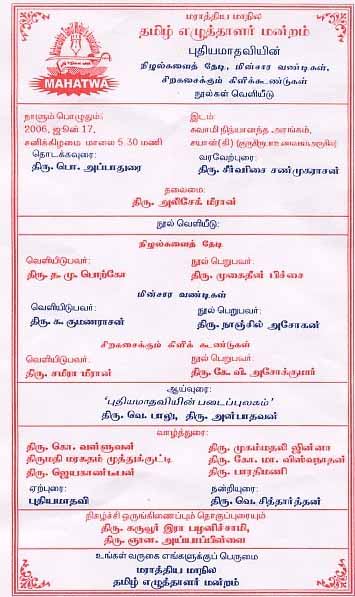 மராத்திய மாநில
தமிழ் எழுத்தாளர் மன்றம்
புதியமாதவியின்
நிழல்களைத் தேடி, மின்சார வண்டிகள்,
சிறகசைக்கும் கிளிக்கூண்டுகள்
நூல்கள் வெளியீடு
MAHATWA
நாளும் பொழுதும்:
2006, ஜூன் 17,
சனிக்கிழமை மாலை 5.30 மணி
இடம்
சுவாமி நித்யானந்த அரங்கம்,
சயான்(கி)
தொடக்கவுரை:
திரு. பொ. அப்பாதுரை
வரவேற்புரை:
திரு. சீர்வரிசை சண்முகராசன்
தலைமை:
திரு. அலிசேக் மீரான்
நூல் வெளியீடு:
நிழல்களைத் தேடி
வெளியிடுபவர்:
திரு. த. மு. பொற்கோ
நூல் பெறுபவர்:
திரு. முகைதீன் பிச்சை
மின்சார வண்டிகள்
வெளியிடுபவர்:
திரு. சு. குமணராசன்
நூல் பெறுபவர்:
திரு. நாஞ்சில் அசோகன்
சிறகசைக்கும் கிளிக் கூண்டுகள்
வெளியிடுபவர்:
திரு. சமீரா மீரான்
நூல் பெறுபவர்:
திரு. கே. வி. அசோக்குமார்
ஆய்வுரை:
'புதியமாதவியின் படைப்புலகம்'
திரு. வெ. பாலு, திரு. அன்பாதவன்
வாழ்த்துரை:
திரு. கோ. வள்ளுவன்
திருமதி மரகதம் முத்துக்குட்டி
திரு. ஜெயகாண்டீபன்
திரு. முகம்மதலி ஜின்னா
திரு. கோ. மா. விஸ்வநாதன்
திரு. பாரதிமணி
ஏற்புரை:
புதியமாதவி
நன்றியுரை:
திரு. வெ. சித்தார்த்தன்
நிகழ்ச்சி ஒருங்கிணைப்பும் தொகுப்புரையும்
திரு. கருவூர் இரா பழனிச்சாமி,
திரு. ஞான. அய்யாப்பிள்ளை
உங்கள் வருகை எங்களுக்குப் பெருமை
மராத்திய மாநில
தமிழ் எழுத்தாளர் மன்றம்